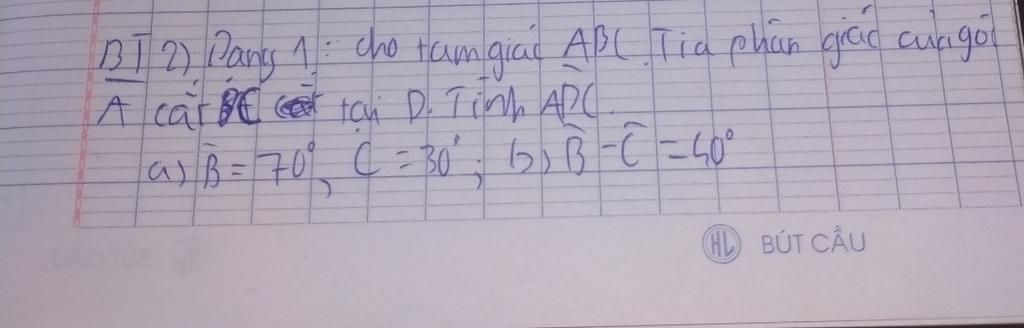 BT 2) Dạng 1: cho tam giác ABC. Tia phân giác của gó
A cắt BC tại D. Tính ADC.
a) B̂ = 70°, C = 30°; b) B̂ - Ĉ = 40°
HL BÚT CẦU